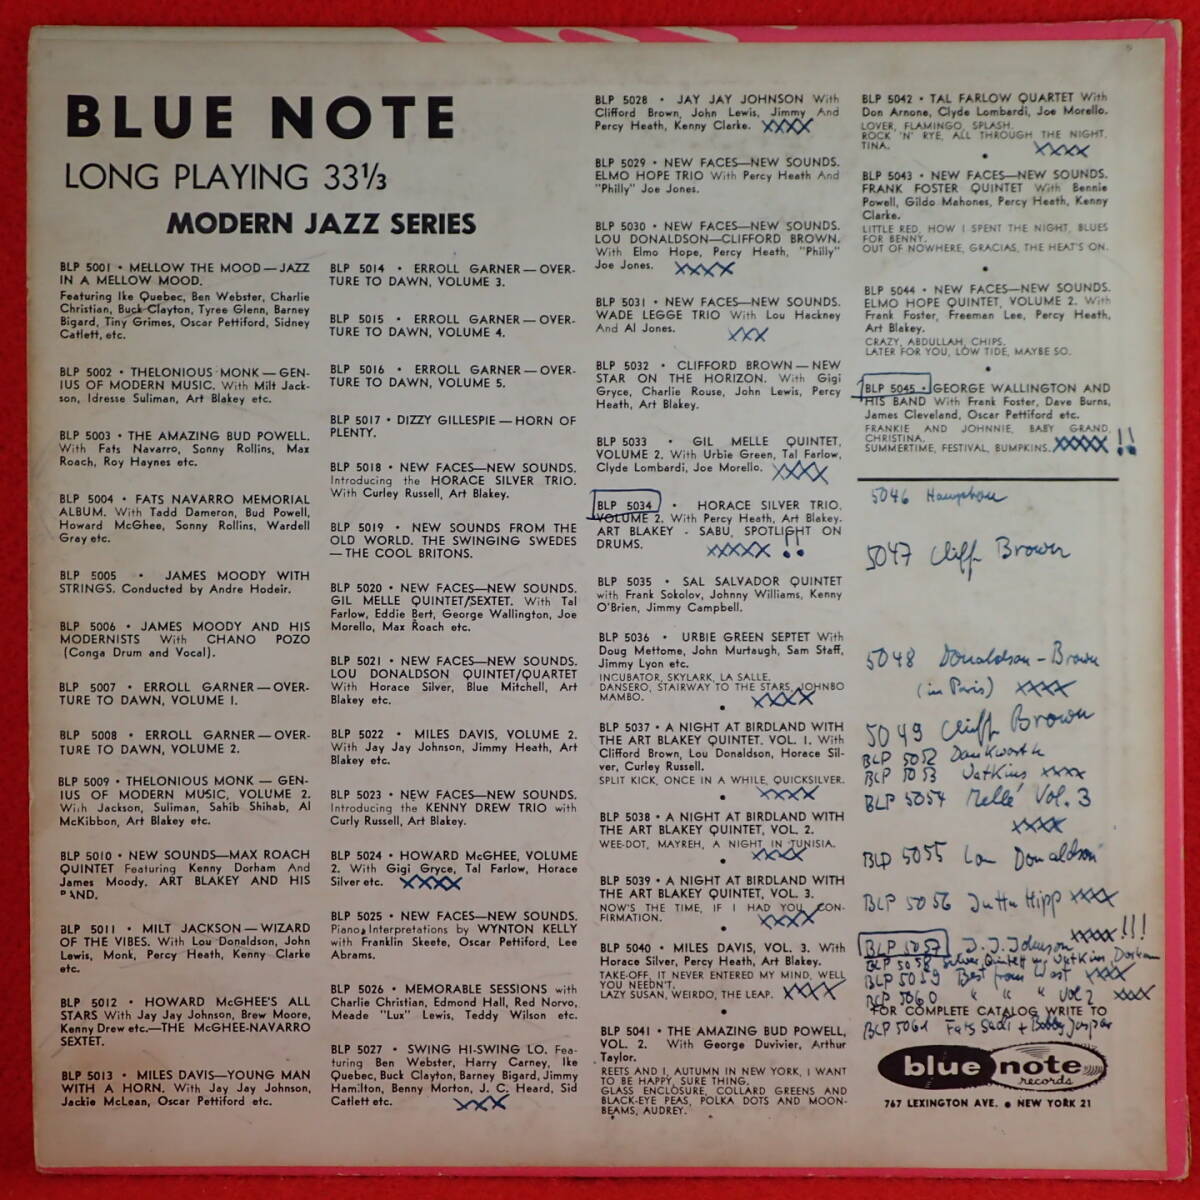 BLUE NOTE
LONG PLAYING 33⅓
MODERN JAZZ SERIES
BLP 5001 • MELLOW THE MOOD — JAZZ
IN A MELLOW MOOD.
Featuring Ike Quebec, Ben Webster, Charlie
Christian, Buck Clayton, Tyree Glenn, Barney
Bigard, Tiny Grimes, Oscar Pettiford, Sidney
Catlett, etc.
BLP 5002 • THELONIOUS MONK — GEN-
IUS OF MODERN MUSIC. With Milt Jack-
son, Idresse Suliman, Art Blakey etc.
BLP 5003 • THE AMAZING BUD POWELL.
With Fats Navarro, Sonny Rollins, Max
Roach, Roy Haynes etc.
BLP 5004 • FATS NAVARRO MEMORIAL
ALBUM. With Tadd Dameron, Bud Powell,
Howard McGhee, Sonny Rollins, Wardell
Gray etc.
BLP 5005 • JAMES MOODY WITH
STRINGS. Conducted by Andre Hodeir.
BLP 5006 • JAMES MOODY AND HIS
MODERNISTS With CHANO POZO
(Conga Drum and Vocal).
BLP 5007 • ERROLL GARNER — OVER-
TURE TO DAWN, VOLUME 1.
BLP 5008 • ERROLL GARNER — OVER-
TURE TO DAWN, VOLUME 2.
BLP 5009 • THELONIOUS MONK — GEN-
IUS OF MODERN MUSIC, VOLUME 2.
With Jackson, Suliman, Sahib Shihab, Al
McKibbon, Art Blakey etc.
BLP 5010 • NEW SOUNDS—MAX ROACH
QUINTET Featuring Kenny Dorham And
James Moody. ART BLAKEY AND HIS
BAND.
BLP 5011 • MILT JACKSON — WIZARD
OF THE VIBES. With Lou Donaldson, John
Lewis, Monk, Percy Heath, Kenny Clarke
etc.
BLP 5012 • HOWARD McGHEE'S ALL
STARS With Jay Jay Johnson, Brew Moore,
Kenny Drew etc.—THE McGHEE-NAVARRO
SEXTET.
BLP 5013 • MILES DAVIS—YOUNG MAN
WITH A HORN. With Jay Jay Johnson,
Jackie McLean, Oscar Pettiford etc.
BLP 5014 • ERROLL GARNER — OVER-
TURE TO DAWN, VOLUME 3.
BLP 5015 • ERROLL GARNER — OVER-
TURE TO DAWN, VOLUME 4.
BLP 5016 • ERROLL GARNER — OVER-
TURE TO DAWN, VOLUME 5.
BLP 5017 • DIZZY GILLESPIE — HORN OF
PLENTY.
BLP 5018 • NEW FACES—NEW SOUNDS.
Introducing the HORACE SILVER TRIO.
With Curley Russell, Art Blakey.
BLP 5019 • NEW SOUNDS FROM THE
OLD WORLD. THE SWINGING SWEDES
— THE COOL BRITONS.
BLP 5020 • NEW FACES—NEW SOUNDS.
GIL MELLE QUINTET/SEXTET. With Tal
Farlow, Eddie Bert, George Wallington, Joe
Morello, Max Roach etc.
BLP 5021 • NEW FACES—NEW SOUNDS.
LOU DONALDSON QUINTET/QUARTET
With Horace Silver, Blue Mitchell, Art
Blakey etc.
BLP 5022 • MILES DAVIS, VOLUME 2.
With Jay Jay Johnson, Jimmy Heath, Art
Blakey etc.
BLP 5023 • NEW FACES—NEW SOUNDS.
Introducing the KENNY DREW TRIO with
Curly Russell, Art Blakey.
BLP 5024 • HOWARD McGHEE, VOLUME
2. With Gigi Gryce, Tal Farlow, Horace
Silver etc. XXXX
BLP 5025 • NEW FACES—NEW SOUNDS.
Piano Interpretations by WYNTON KELLY
with Franklin Skeete, Oscar Pettiford, Lee
Abrams.
BLP 5026 • MEMORABLE SESSIONS with
Charlie Christian, Edmond Hall, Red Norvo,
Meade "Lux" Lewis, Teddy Wilson etc.
BLP 5027 • SWING HI-SWING LO. Fea-
turing Ben Webster, Harry Carney, Ike
Quebec, Buck Clayton, Barney Bigard, Jimmy
Hamilton, Benny Morton, J. C. Heard, Sid
Catlett etc. XXX
BLP 5028 • JAY JAY JOHNSON With
Clifford Brown, John Lewis, Jimmy And
Percy Heath, Kenny Clarke. XXXX
BLP 5029 • NEW FACES—NEW SOUNDS.
ELMO HOPE TRIO With Percy Heath And
"Philly" Joe Jones.
BLP 5030 • NEW FACES—NEW SOUNDS.
LOU DONALDSON—CLIFFORD BROWN.
With Elmo Hope, Percy Heath, "Philly"
Joe Jones. XXXX
BLP 5031 • NEW FACES—NEW SOUNDS.
WADE LEGGE TRIO With Lou Hackney
And Al Jones. XXX
BLP 5032 • CLIFFORD BROWN — NEW
STAR ON THE HORIZON. With Gigi
Gryce, Charlie Rouse, John Lewis, Percy
Heath, Art Blakey.
BLP 5033 • GIL MELLE QUINTET,
VOLUME 2. With Urbie Green, Tal Farlow,
Clyde Lombardi, Joe Morello. XXXX
BLP 5034 • HORACE SILVER TRIO,
VOLUME 2. With Percy Heath, Art Blakey.
ART BLAKEY - SABU, SPOTLIGHT ON
DRUMS. XXXXX !!
BLP 5035 • SAL SALVADOR QUINTET
with Frank Sokolov, Johnny Williams, Kenny
O'Brien, Jimmy Campbell.
BLP 5036 • URBIE GREEN SEPTET With
Doug Mettome, John Murtaugh, Sam Staff,
Jimmy Lyon etc.
INCUBATOR, SKYLARK, LA SALLE,
DANSERO, STAIRWAY TO THE STARS, JOHNBO
MAMBO. XXXX
BLP 5037 • A NIGHT AT BIRDLAND WITH
THE ART BLAKEY QUINTET. VOL. 1. With
Clifford Brown, Lou Donaldson, Horace Sil-
ver, Curley Russell.
SPLIT KICK, ONCE IN A WHILE, QUICKSILVER.
XXXX
BLP 5038 • A NIGHT AT BIRDLAND WITH
THE ART BLAKEY QUINTET, VOL. 2.
WEE-DOT, MAYREH, A NIGHT IN TUNISIA.
XXXX
BLP 5039 • A NIGHT AT BIRDLAND WITH
THE ART BLAKEY QUINTET, VOL. 3.
NOW'S THE TIME, IF I HAD YOU, CON-
FIRMATION. XXXX
BLP 5040 • MILES DAVIS, VOL. 3. With
Horace Silver, Percy Heath, Art Blakey.
TAKE-OFF, IT NEVER ENTERED MY MIND, WELL
YOU NEEDN'T,
LAZY SUSAN, WEIRDO, THE LEAP. XXXX
BLP 5041 • THE AMAZING BUD POWELL,
VOL. 2. With George Duvivier, Arthur
Taylor.
REETS AND I, AUTUMN IN NEW YORK, I WANT
TO BE HAPPY, SURE THING,
GLASS ENCLOSURE, COLLARD GREENS AND
BLACK-EYE PEAS, POLKA DOTS AND MOON-
BEAMS, AUDREY.
BLP 5042 • TAL FARLOW QUARTET With
Don Arnone, Clyde Lombardi, Joe Morello.
LOVER, FLAMINGO, SPLASH,
ROCK 'N' RYE, ALL THROUGH THE NIGHT,
TINA. XXXX
BLP 5043 • NEW FACES—NEW SOUNDS.
FRANK FOSTER QUINTET With Bennie
Powell, Gildo Mahones, Percy Heath, Kenny
Clarke.
LITTLE RED, HOW I SPENT THE NIGHT, BLUES
FOR BENNY,
OUT OF NOWHERE, GRACIAS, THE HEAT'S ON.
BLP 5044 • NEW FACES—NEW SOUNDS.
ELMO HOPE QUINTET, VOLUME 2. With
Frank Foster, Freeman Lee, Percy Heath,
Art Blakey.
CRAZY, ABDULLAH, CHIPS,
LATER FOR YOU, LOW TIDE, MAYBE SO.
BLP 5045 • GEORGE WALLINGTON AND
HIS BAND With Frank Foster, Dave Burns,
James Cleveland, Oscar Pettiford etc.
FRANKIE AND JOHNNIE, BABY GRAND,
CHRISTINA,
SUMMERTIME, FESTIVAL, BUMPKINS. XXXXX !!
5046 Hamphou
5047 Cliff Brown
5048 Donaldson - Brown
(in Paris) XXXX
5049 Cliff Brown
BLP 5052 Dankworth
BLP 5053 Watkins XXXX
BLP 5054 Mellé Vol. 3
XXXX
BLP 5055 Lou Donaldson
BLP 5056 Jutta Hipp XXXX
BLP 5057 J.J. Johnson XXXX !!!
BLP 5058 Silver Quintett w. Watkins, Dorham
BLP 5059 Best from West XXXX
BLP 5060 " " " Vol 2 XXXX
FOR COMPLETE CATALOG WRITE TO
BLP 5061 Fats Sadi + Bobby Jaspar
blue note
records
767 LEXINGTON AVE. • NEW YORK 21